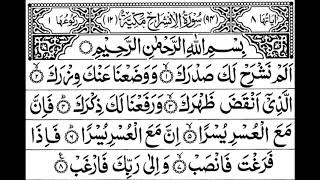 اٰیَاتُهَا ٨ (٩٤) سُوْرَةُ الْاِنْشِرَاحِ مَكِّیَّةٌ (١٢) رُكُوْعُهَا ١
بِسْمِ اللّٰهِ الرَّحْمٰنِ الرَّحِیْمِ
اَلَمْ نَشْرَحْ لَكَ صَدْرَكَ ١ وَوَضَعْنَا عَنْكَ وِزْرَكَ ٢
الَّذِیْۤ اَنْقَضَ ظَهْرَكَ ٣ وَرَفَعْنَا لَكَ ذِكْرَكَ ٤ فَاِنَّ
مَعَ الْعُسْرِ یُسْرًا ٥ اِنَّ مَعَ الْعُسْرِ یُسْرًا ٦ فَاِذَا
فَرَغْتَ فَانْصَبْ ٧ وَاِلٰى رَبِّكَ فَارْغَبْ ٨